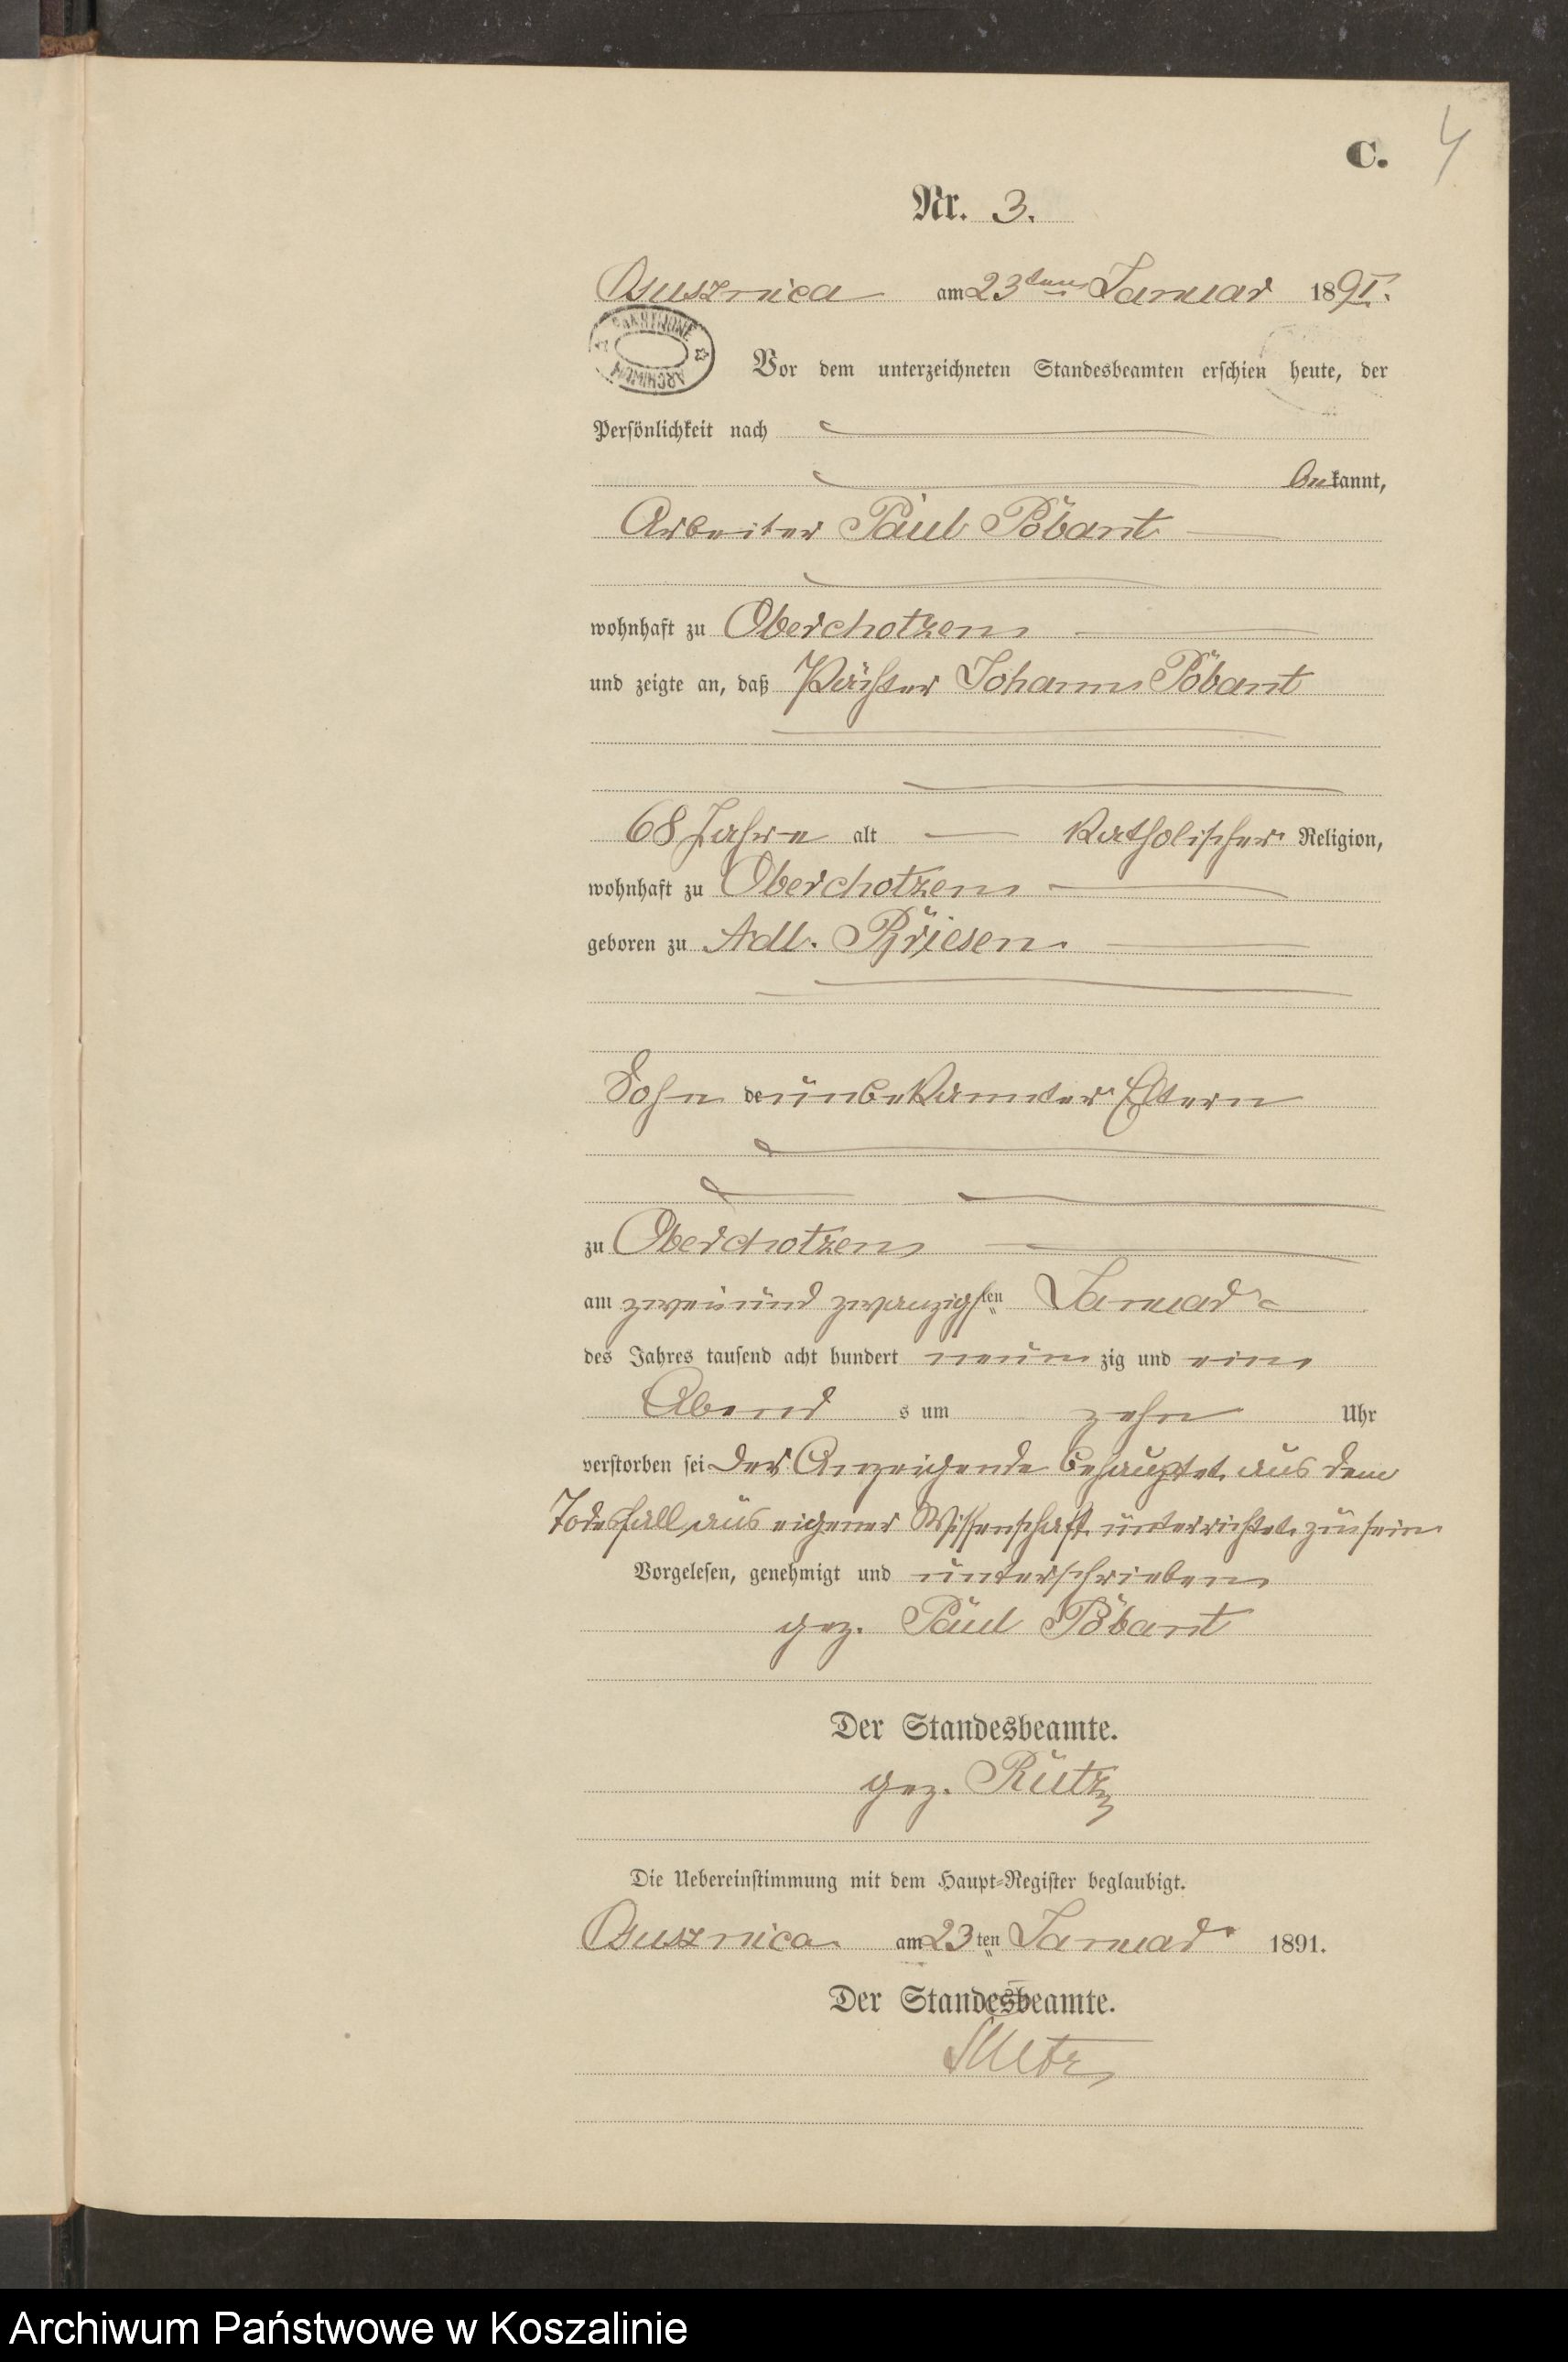 C. 4
Nr. 3.
Osusznica am 23ten Januar 1891.
PAŃSTWOWE ARCHIWUM
Vor dem unterzeichneten Standesbeamten erschien heute, der
Persönlichkeit nach
bekannt,
Arbeiter Paul Pöbant
wohnhaft zu Oberchotzen
und zeigte an, daß Johann Pöbant
68 Jahre alt katholischer Religion,
wohnhaft zu Oberchotzen
geboren zu Adl. Briesen
Sohn de unbekannter Eltern
zu Oberchotzen
am zweiundzwanzigsten Januar
des Jahres tausend acht hundert neunzig und ein
Abend s um zehn Uhr
verstorben sei Der Anzeigende behauptet aus dem
Todesfall aus eigener Wissenschaft unterrichtet zu sein
Vorgelesen, genehmigt und unterschrieben
gez. Paul Pöbant
Der Standesbeamte.
gez. Rutz
Die Uebereinstimmung mit dem Haupt-Register beglaubigt.
Osusznica am 23ten Januar 1891.
Der Standesbeamte.
Rutz
Archiwum Państwowe w Koszalinie